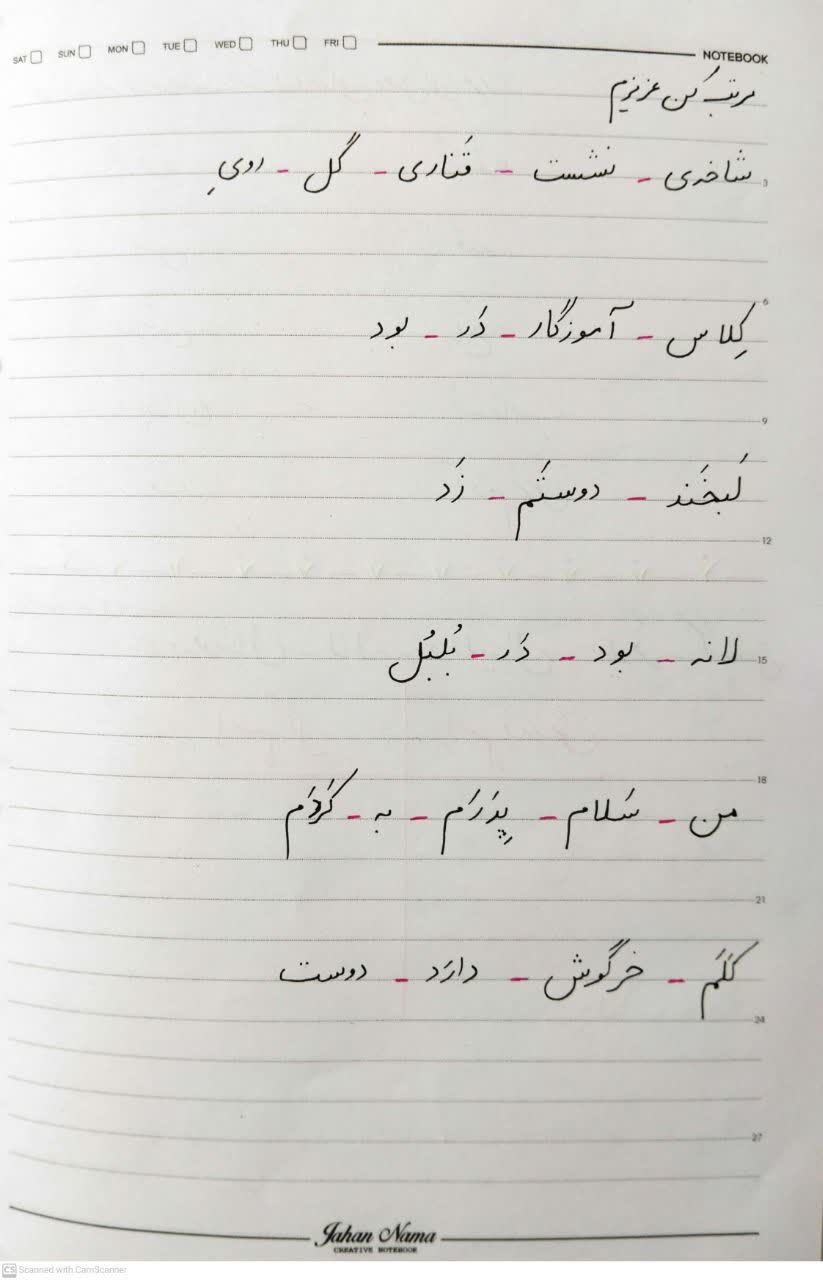 SAT SUN MON TUE WED THU FRI NOTEBOOK
مرتب کن عزیزم
3 شاخه‌ی - نشست - قَناری - گل - رویِ
6
کِلاس - آموزگار - دَر - بود
9
لَبخَند - دوستَم - زَد
12
15 لانه - بود - دَر - بُلبُل
18
من - سَلام - پِدَرَام - به - کَردَم
21
کَلَم - خرگوش - دارَد - دوست
24
27
Jahan Nama
CREATIVE NOTEBOOK
CS Scanned with CamScanner